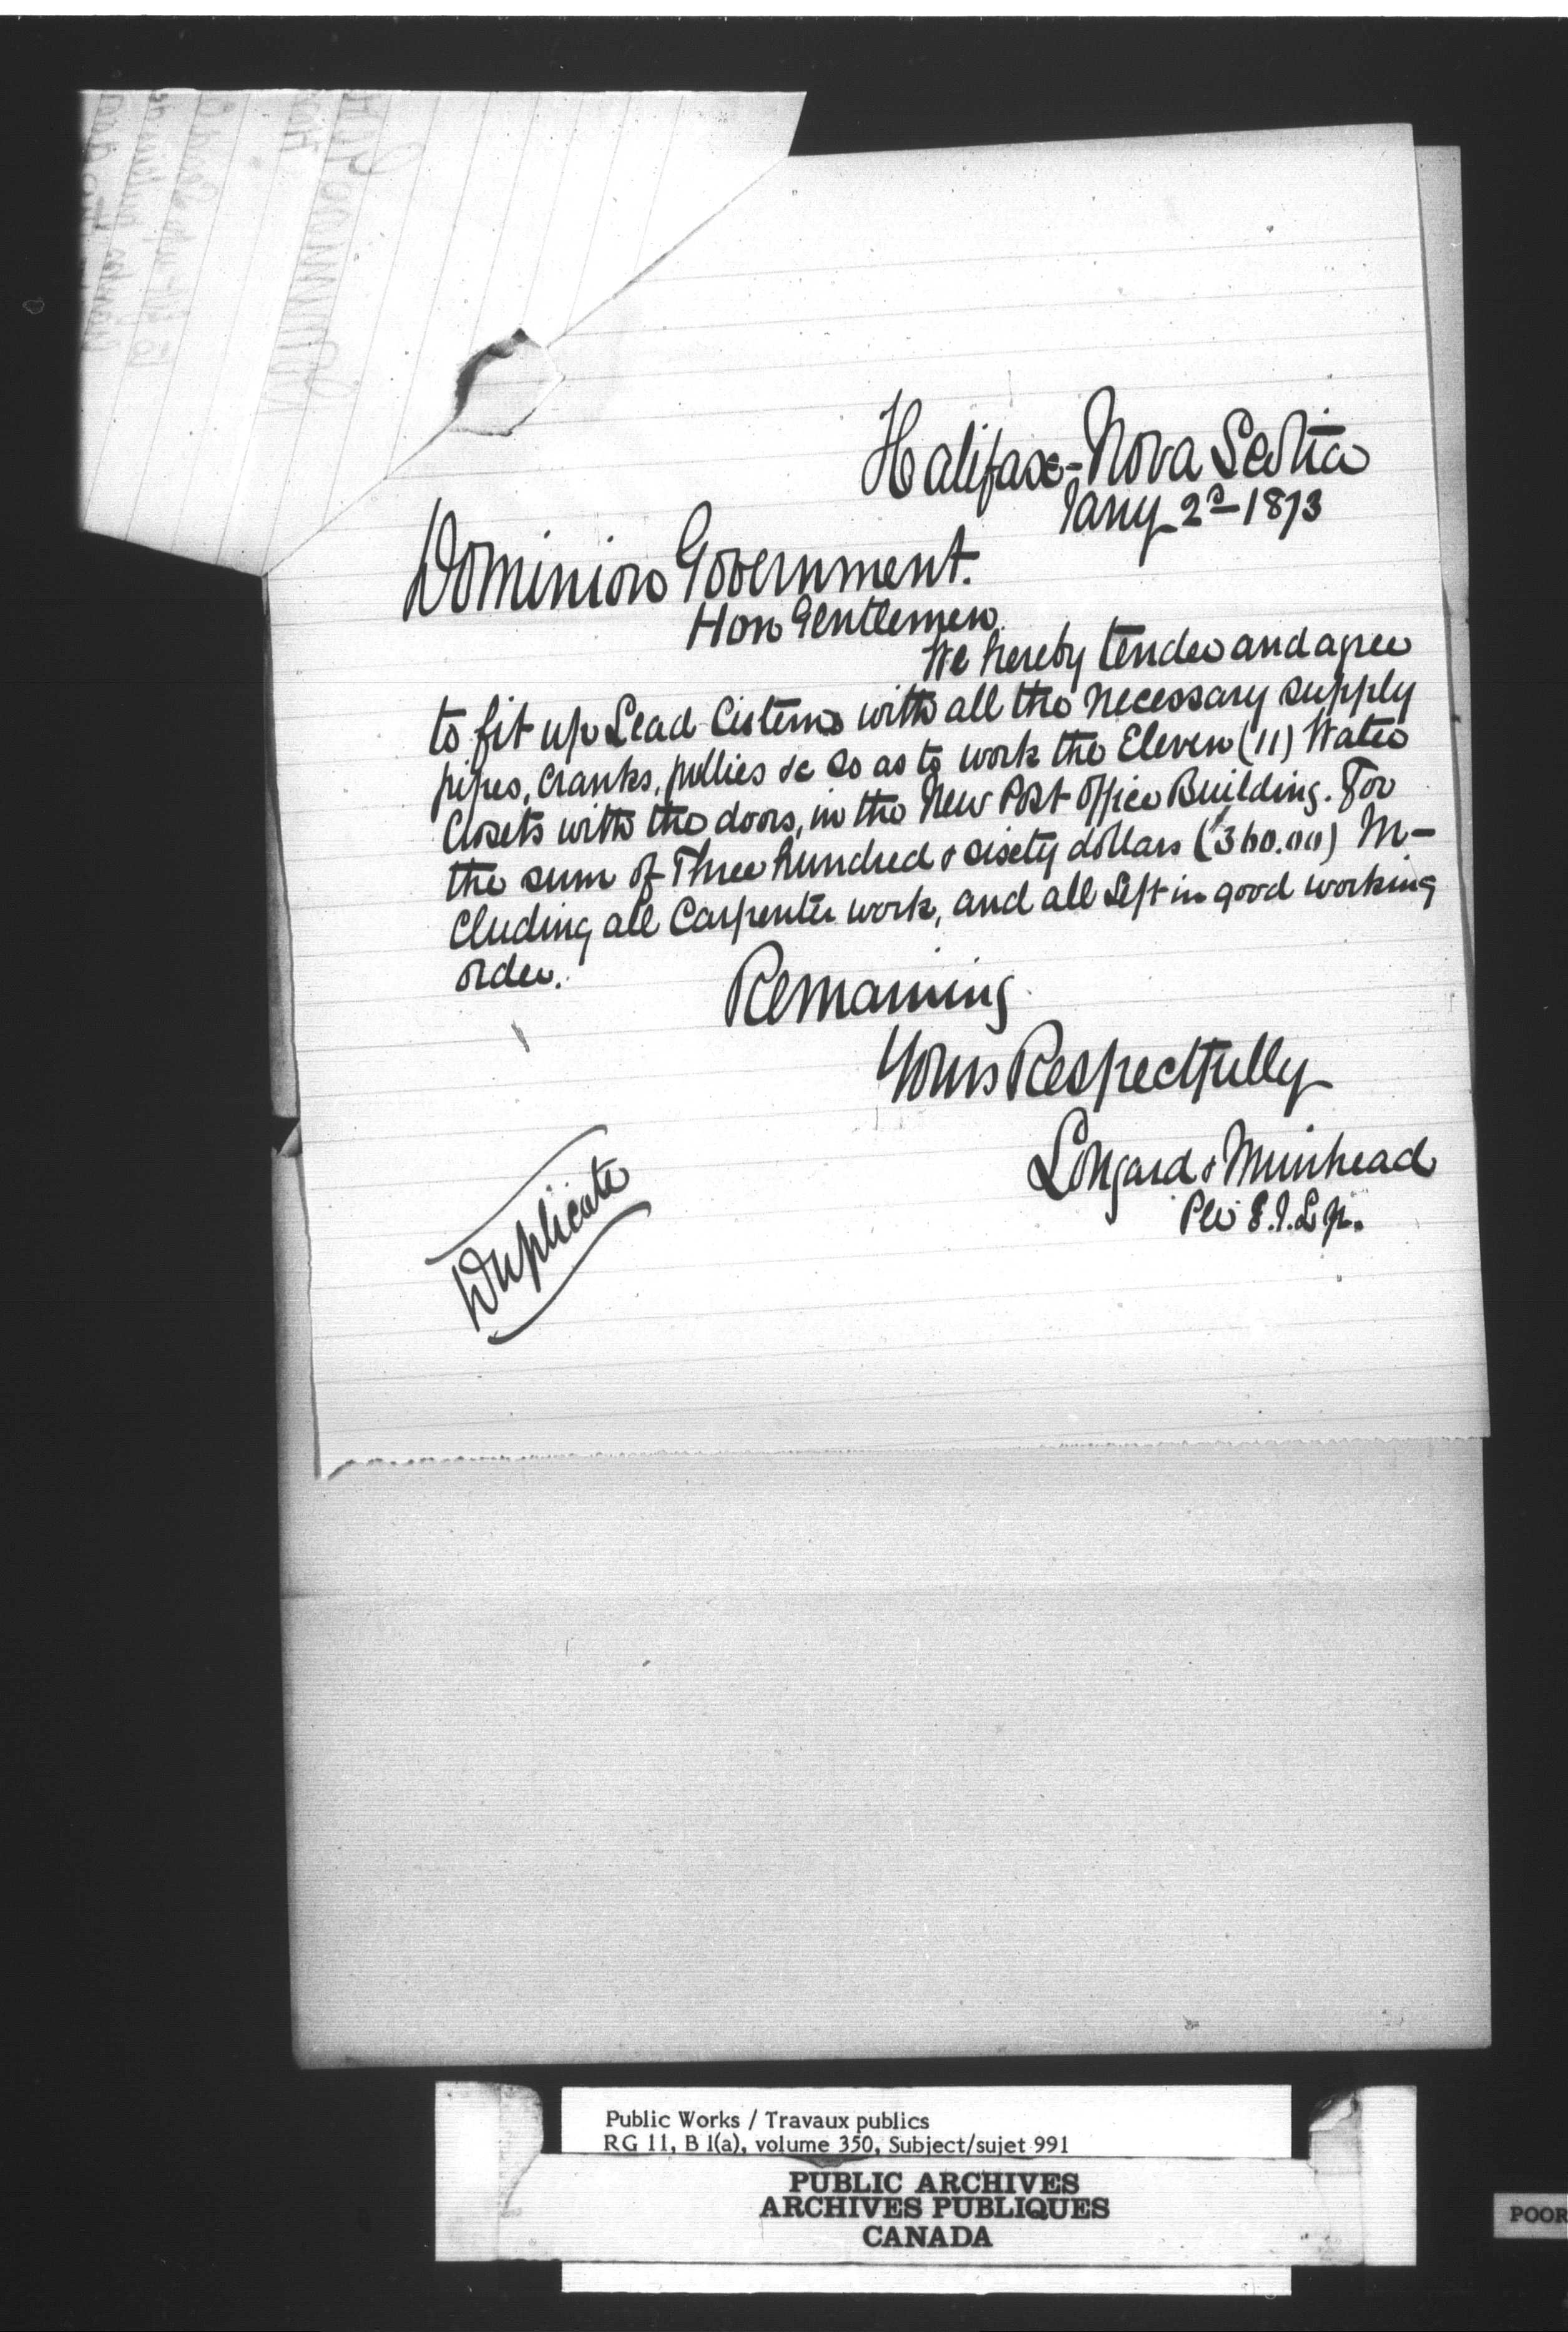 Halifax - Nova Scotia
Jany 2d - 1873
Dominion Government.
Hon Gentlemen
We hereby tender and agree
to fit up Lead Cisterns with all the necessary supply
pipes, cranks, pullies &c so as to work the Eleven (11) Water
Closets with the doors, in the New Post Office Building. For
the sum of Three hundred & sixty dollars ($360.00) In-
cluding all Carpenter work, and all left in good working
order.
Remaining
Yours Respectfully
Longard & Muirhead
Per E.J.L Jr.
Duplicate
Public Works / Travaux publics
RG 11, B 1(a), volume 350, Subject/sujet 991
PUBLIC ARCHIVES
ARCHIVES PUBLIQUES
CANADA
POOR